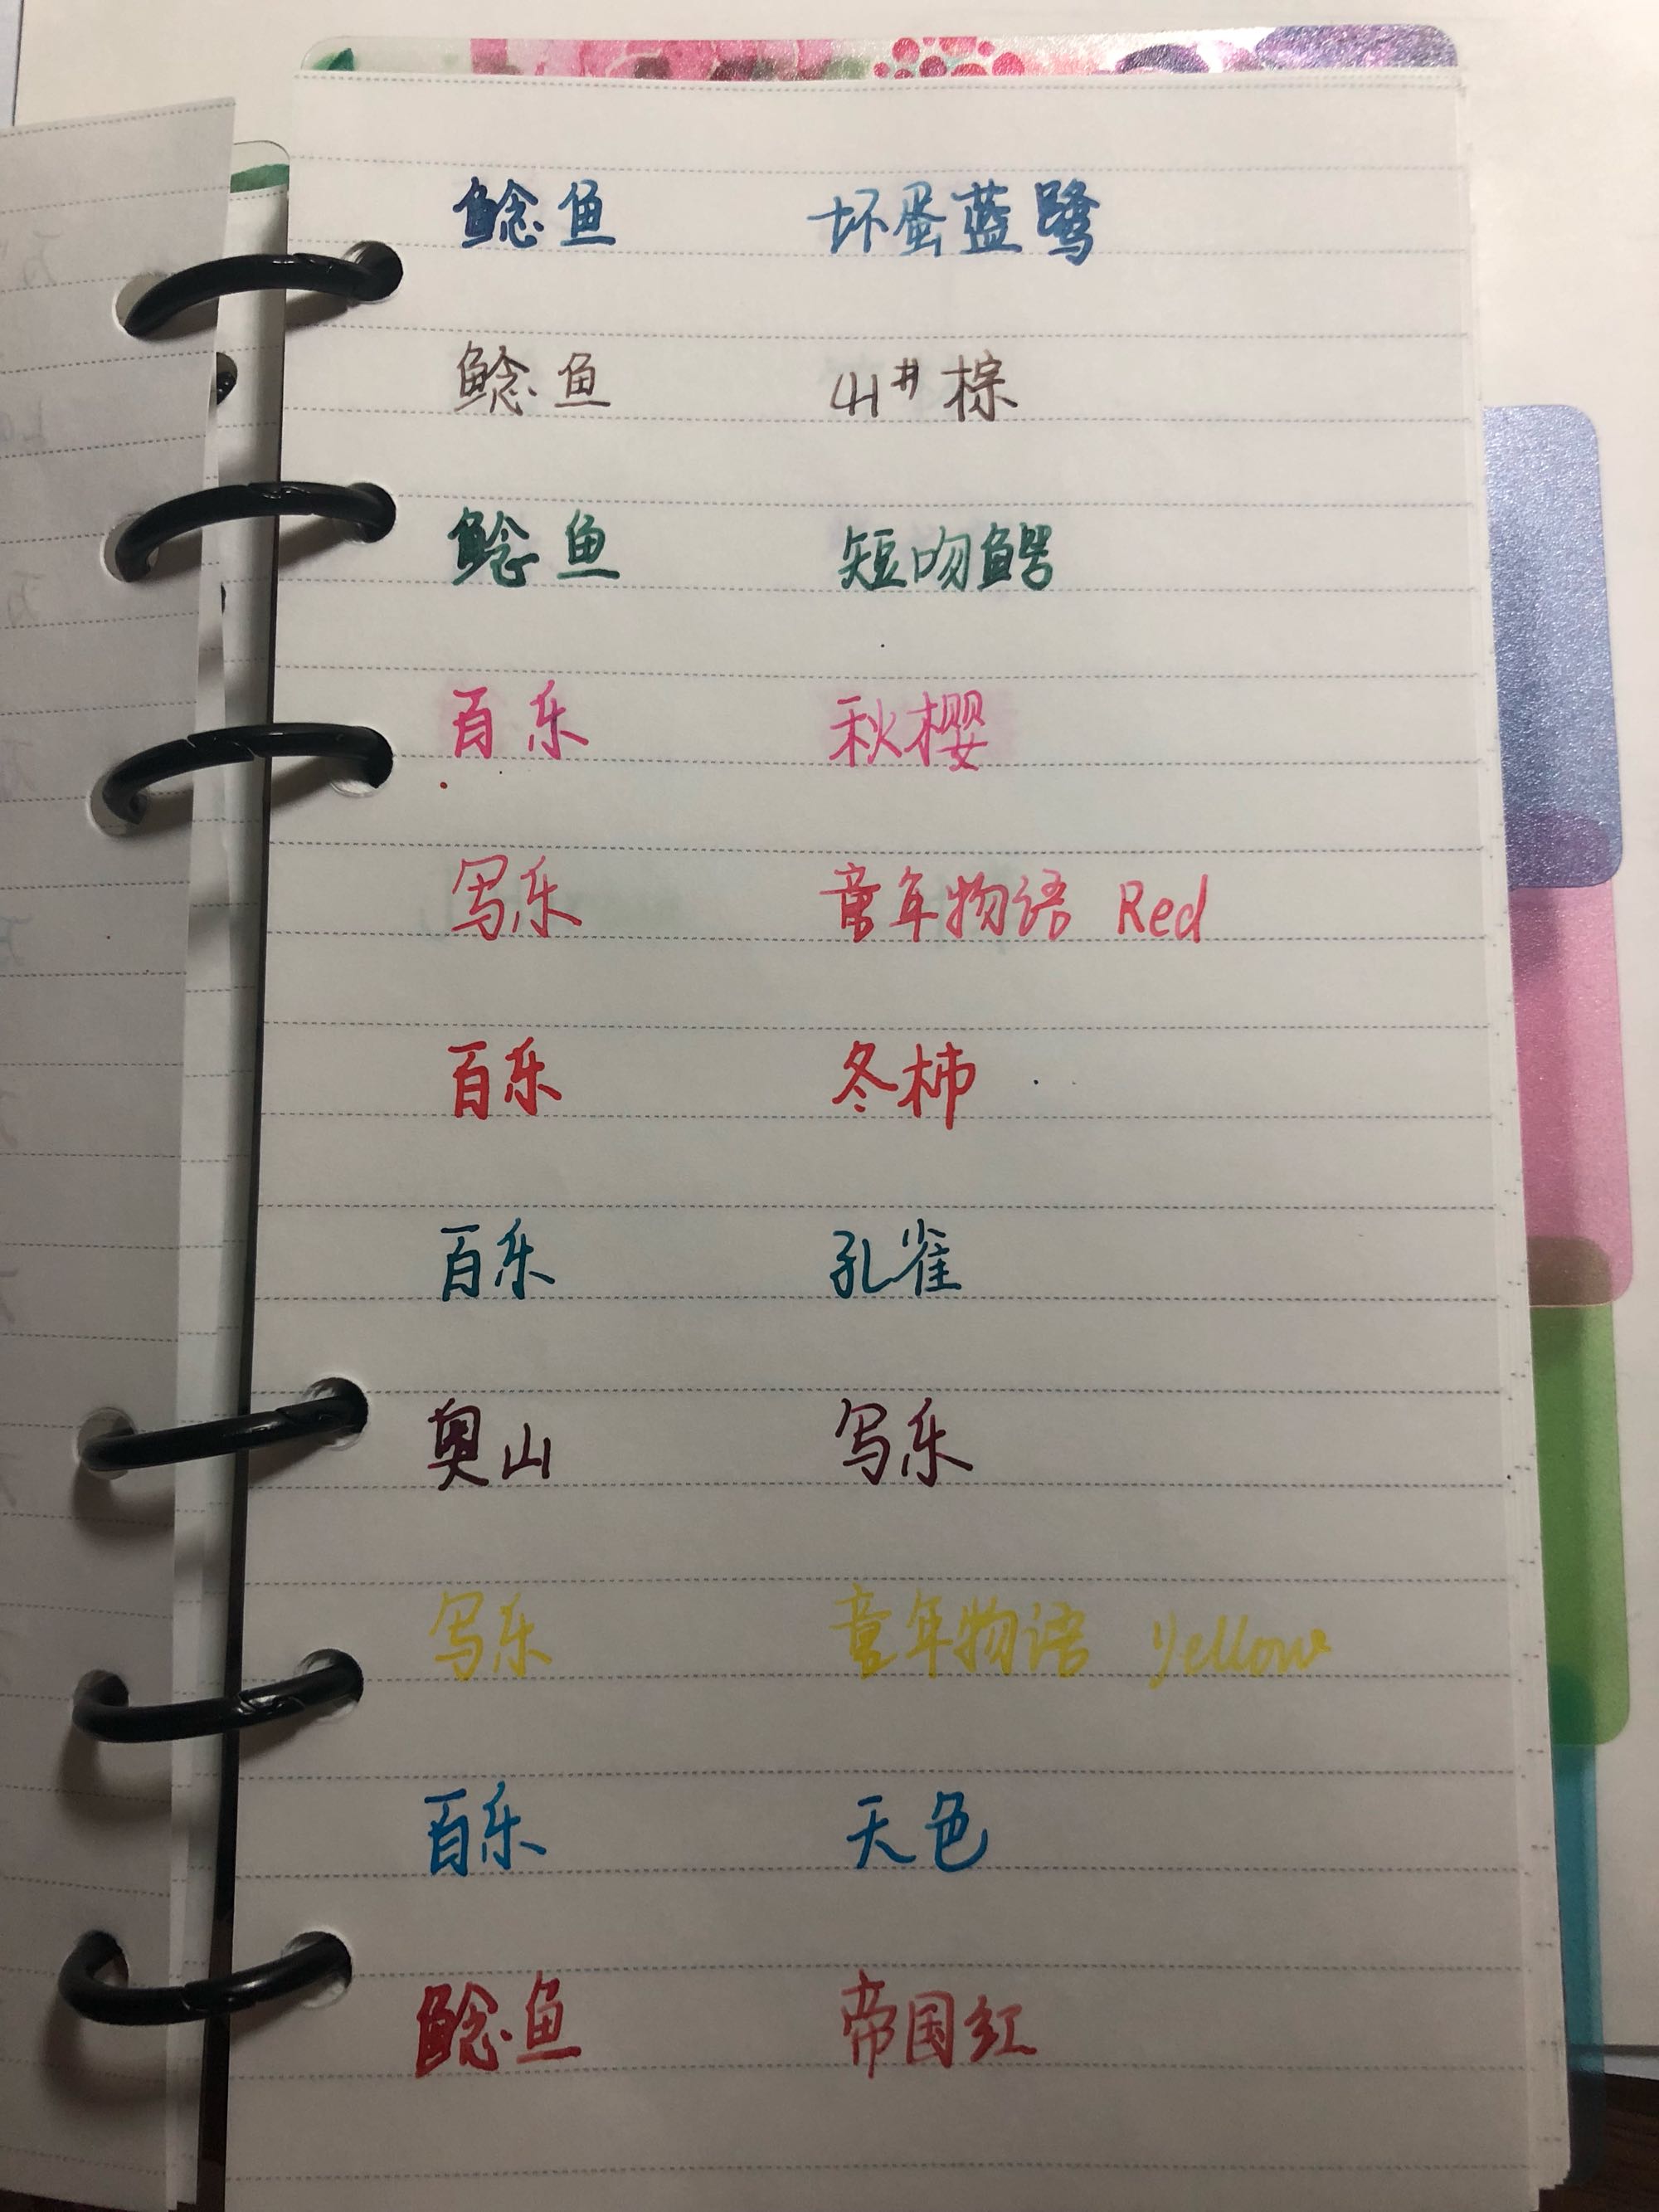 鲶鱼 坏蛋蓝鹭
鲶鱼 41# 棕
鲶鱼 短吻鳄
百乐 秋樱
写乐 童年物语 Red
百乐 冬柿
百乐 孔雀
奥山 写乐
写乐 童年物语 Yellow
百乐 天色
鲶鱼 帝国红